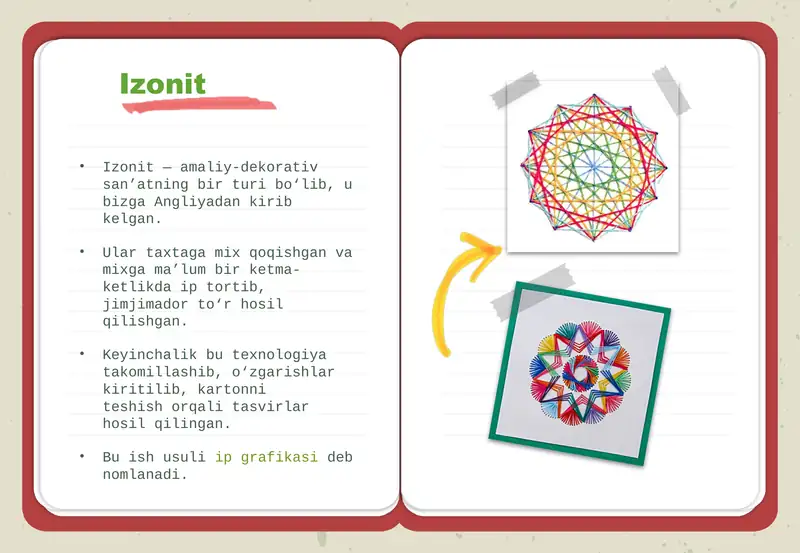 Izonit
• Izonit – amaliy-dekorativ
san’atning bir turi bo‘lib, u
bizga Angliyadan kirib
kelgan.
• Ular taxtaga mix qoqishgan va
mixga ma’lum bir ketma-
ketlikda ip tortib,
jimjimador to‘r hosil
qilishgan.
• Keyinchalik bu texnologiya
takomillashib, o‘zgarishlar
kiritilib, kartonni
teshish orqali tasvirlar
hosil qilingan.
• Bu ish usuli ip grafikasi deb
nomlanadi.